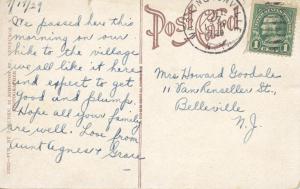 7/17/29
We passed here this
morning on our
hike to the village
we all like it here
and expect to get
Good and plump.
Hope all your family
are well. Love from
Aunt Agness & Grace
Post Card
1 1
Mrs Howard Goodale
11 Van Renseller St.,
Belleville
N.J.